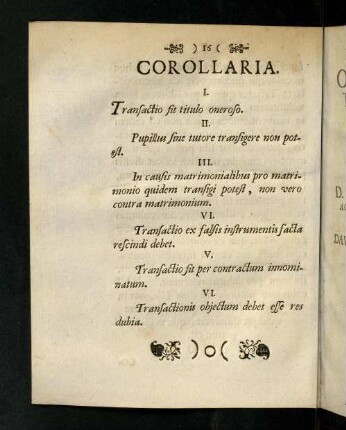 ) 16 (
COROLLARIA.
I.
Transactio fit titulo oneroso.
II.
Pupillus sine tutore transigere non pot-
est.
III.
In causis matrimonialibus pro matri-
monio quidem transigi potest, non vero
contra matrimonium.
VI.
Transactio ex falsis instrumentis facta
rescindi debet.
V.
Transactio fit per contractum innomi-
natum.
VI.
Transactionis objectum debet esse res
dubia.
) o (
O
D.
DAV